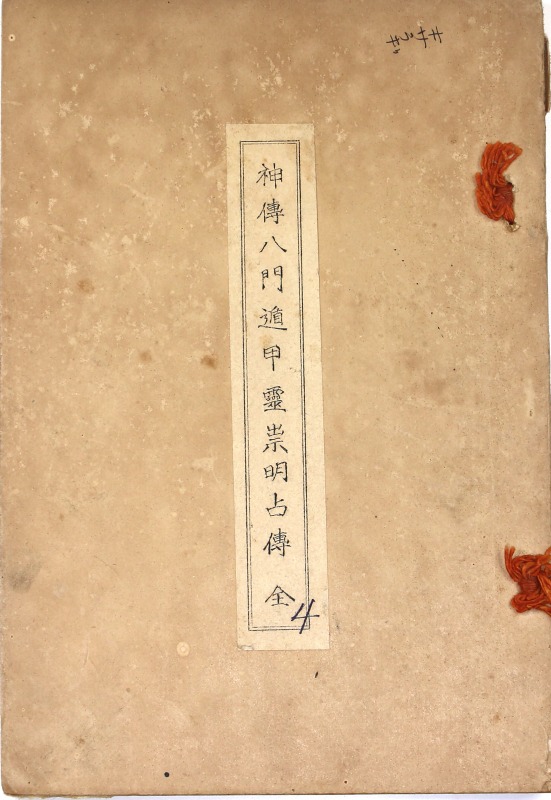 神傳八門遁甲靈祟明占傳 全
4